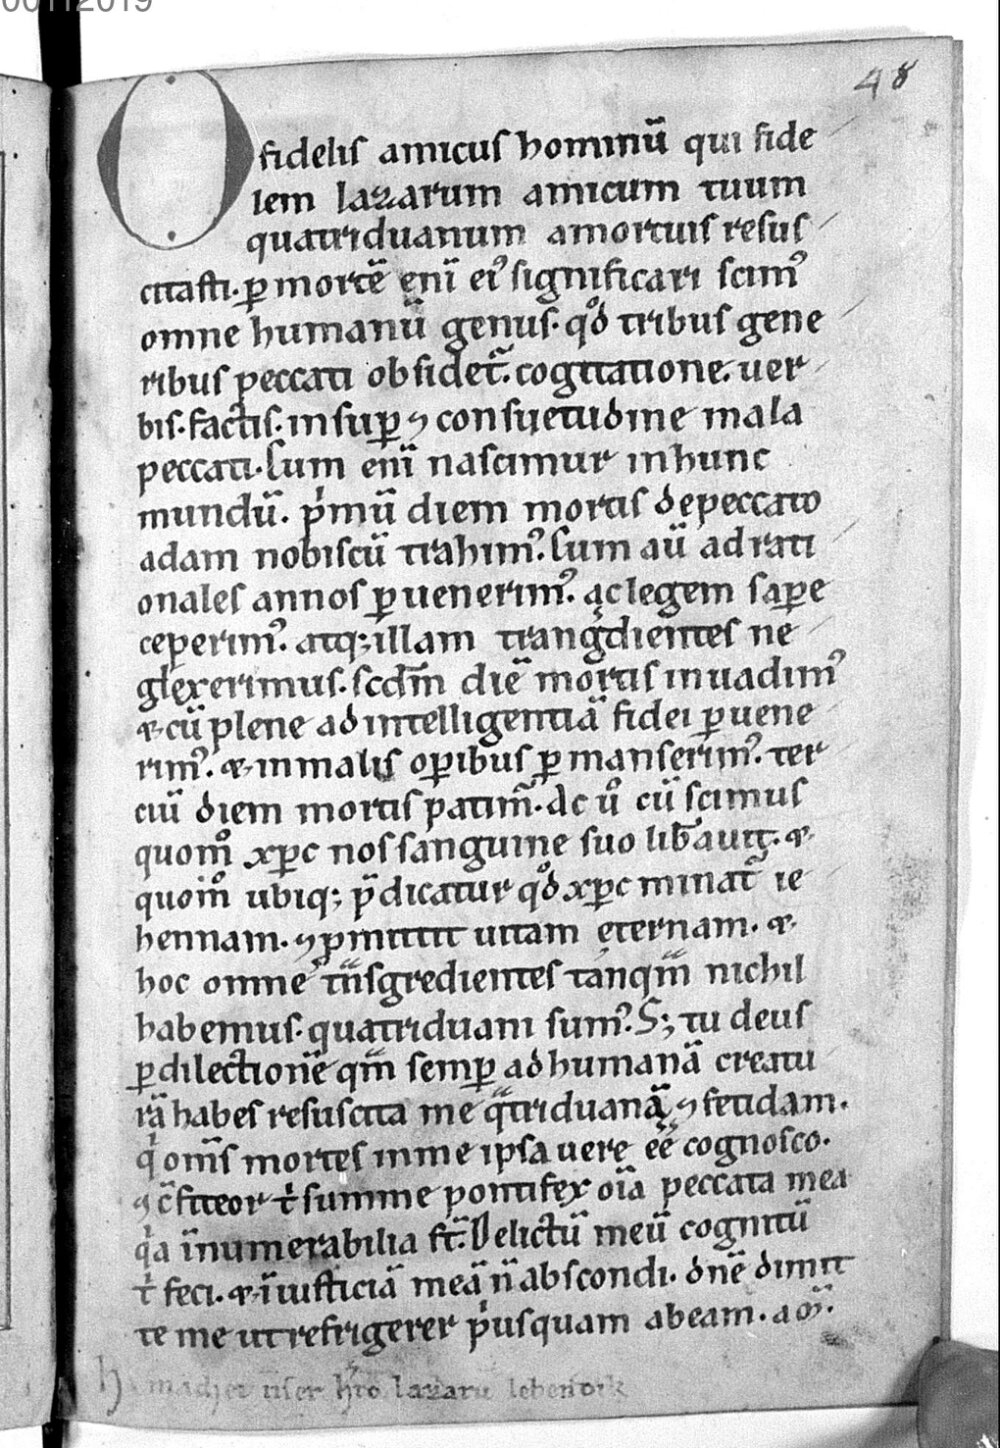 00112019
48
O fidelis amicus hominū qui fide
lem lazarum amicum tuum
quatriduanum amortuis resus
citasti. ꝑ mortē eni̅ ei᾽ significari scim᾽
omne humanū genus. qd̊ tribus gene
ribus peccati obsidet᷑. cogitatione. uer
bis. factis. insuꝑ ⁊ consuetudine mala
peccati. Cum eni̅ nascimur inhunc
mundū. pͥmū diem mortis depeccato
adam nobiscū trahim᾽. Cum aū ad rati
onales annos ꝑuenerim᾽. ac legem saꝑe
ceperim᾽. atq; illam trangͣdientes ne
glexerimus. scdm̅ diē mortis inuadim᾽
& cū plene ad intelligentiā fidei ꝑuene
rim᾽. & inmalis oꝑibus ꝑmanserim᾽. ter
ciū diem mortis patim᷑. Ac uͦ cū scimus
quom̊ xp̅c nos sanguine suo lib̅auit. &
quom̊ ubiq; p̅dicatur qd̊ xp̅c minat᷑ ie
hennam. ⁊ ꝓmittit uitam ęternam. &
hoc omne tn̅sgredientes tanqm̅ nichil
habemus. quatriduani sum᾽. S; tu deus
ꝑ dilectionē qm̅ semꝑ ad humanā creatu
rā habes resuscita me qͣtriduanā ⁊ fetidam.
qͥ om̅s mortes inme ipsa uere eē cognosco.
⁊ c̅fiteor tͥ summe pontifex oi̅a peccata mea
qͥa īnumerabilia st̅. Delictū meū cognitū
tͥ feci. & īiusticiā meā n̅ abscondi. dn̅e dimit
te me ut refrigerer pͥusquam abeam. am̅.
machet vnser h̅ro lazarū lebendik